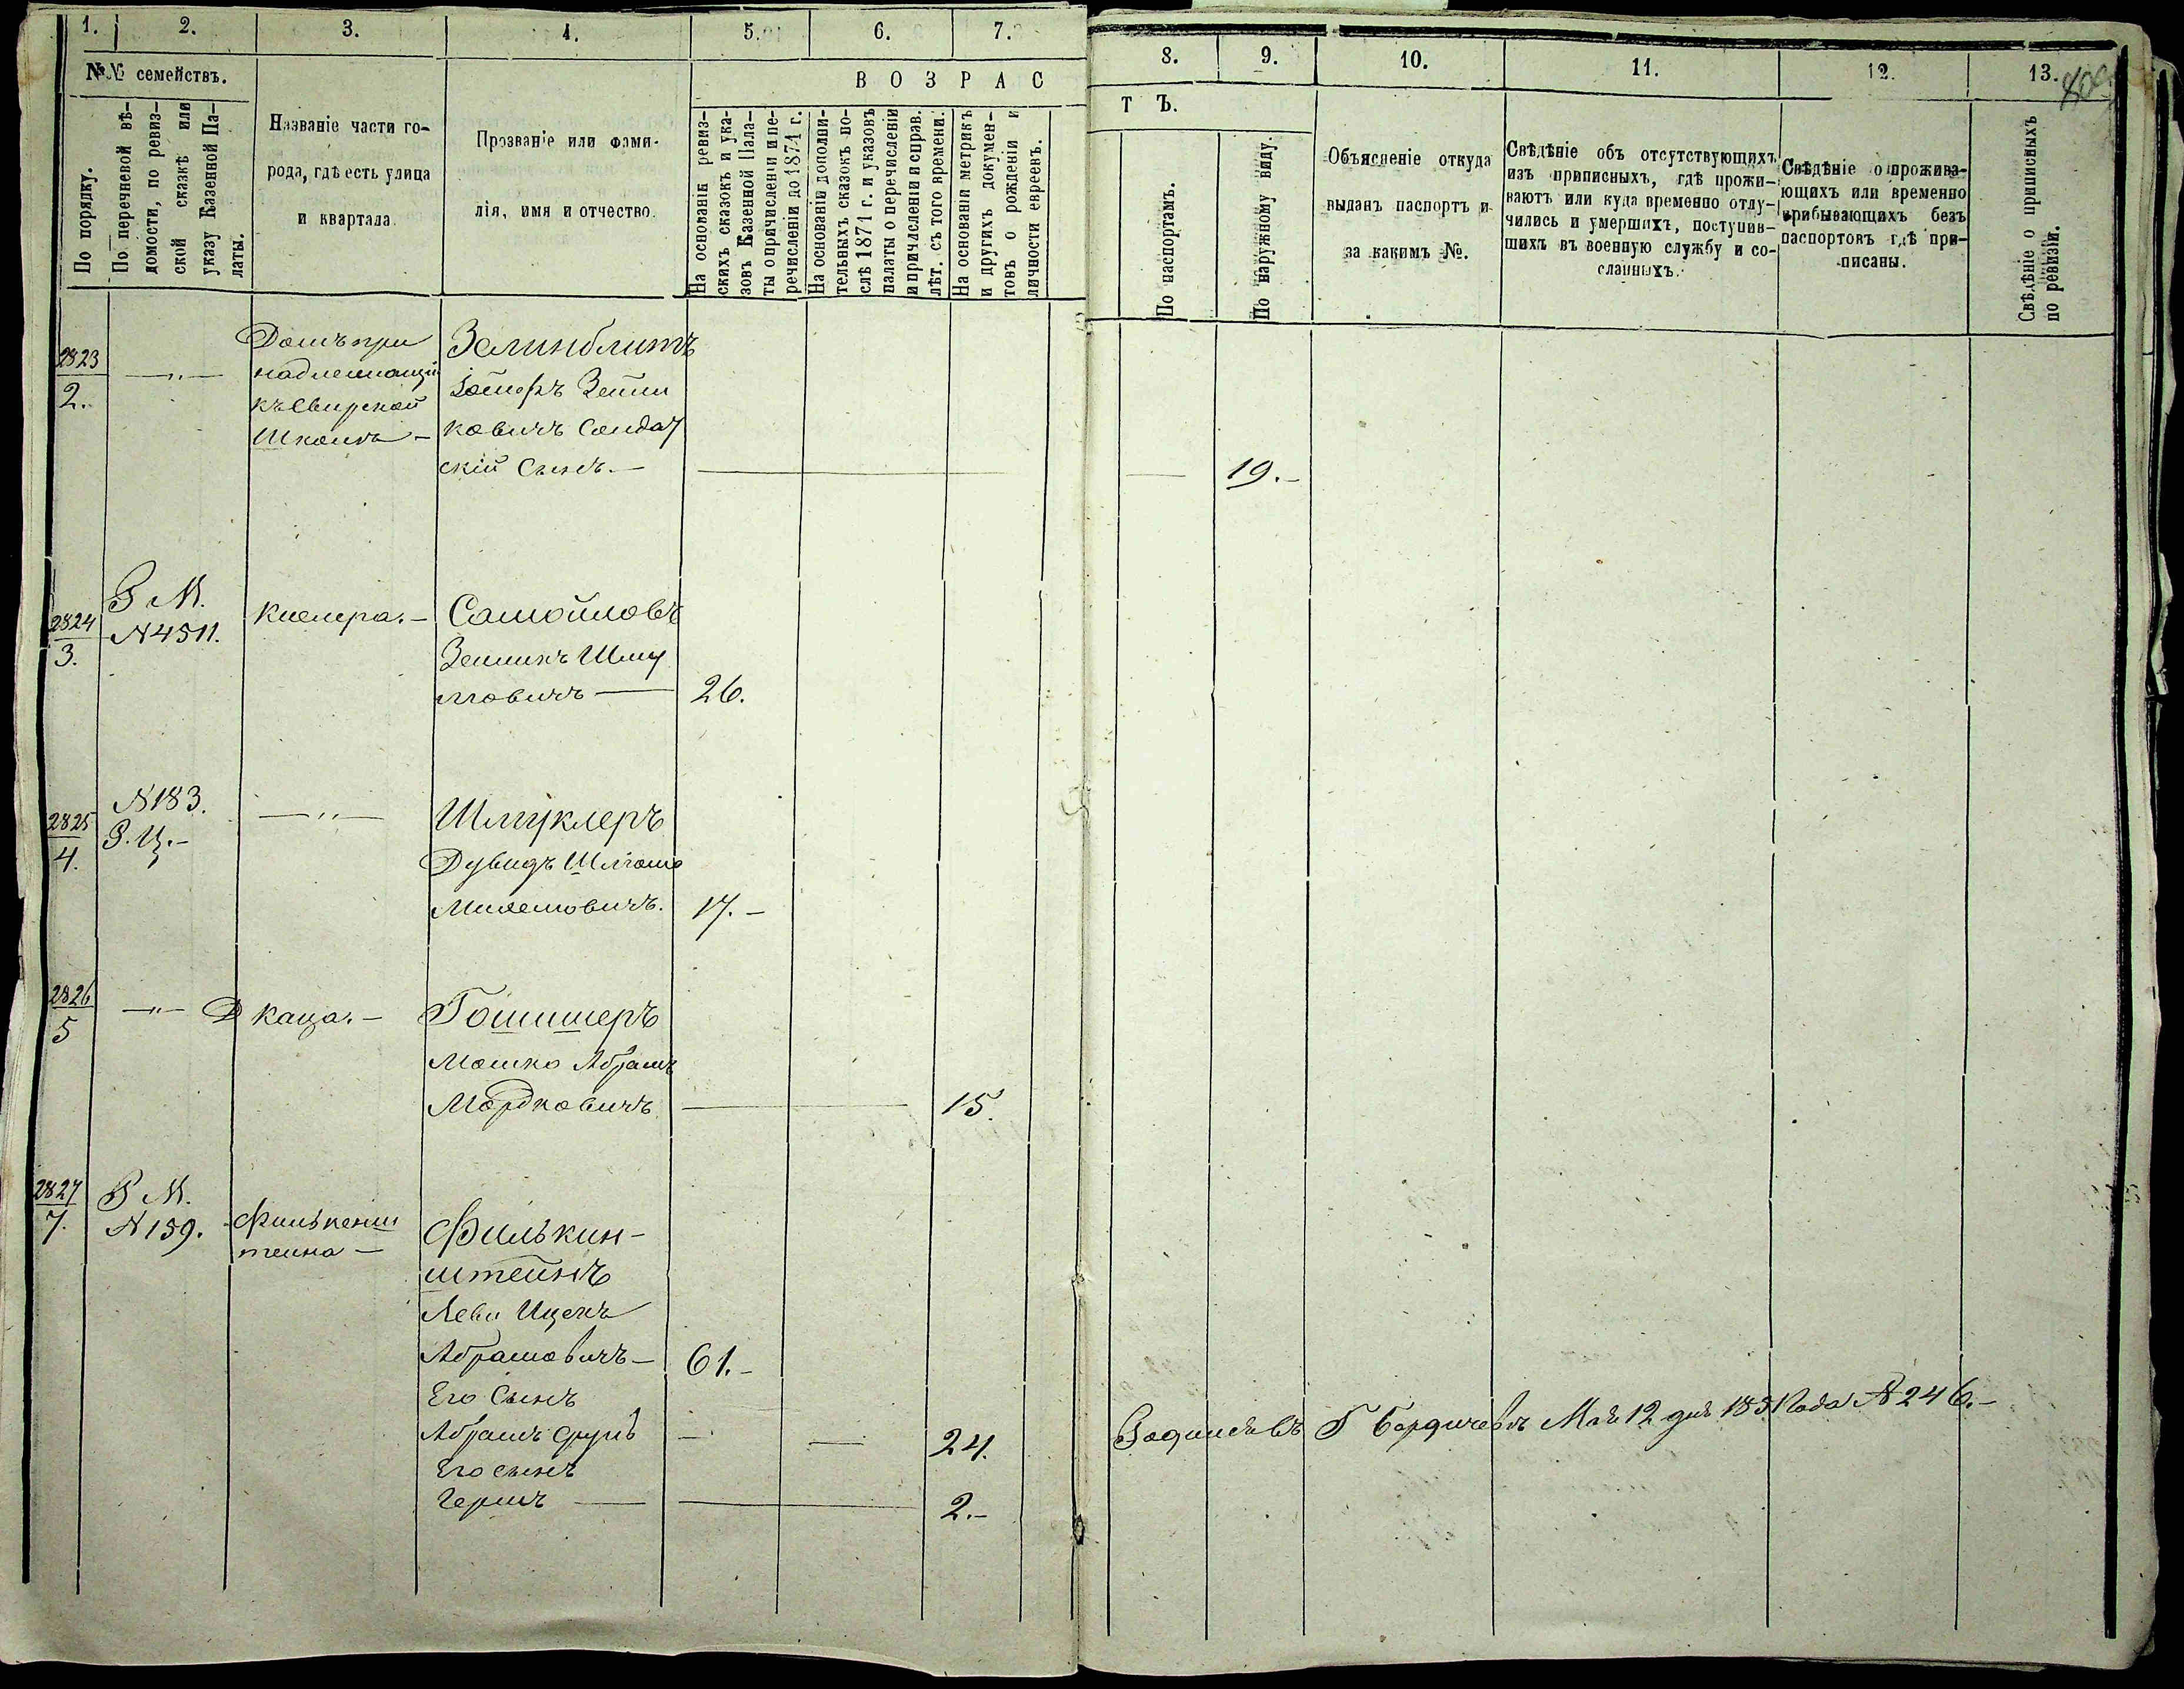 1. 2. 3. 4. 5. 6. 7.
8. 9. 10. 11. 12. 13.
№№ семействъ.
По порядку.
По перечневой вѣ-
домости, по ревиз-
ской сказкѣ или
указу Казенной Па-
латы.
Названіе части го-
рода, гдѣ есть улица
и квартала.
Прозваніе или фами-
лія, имя и отчество.
ВОЗРАС
ТЪ.
На основаніи ревиз-
скихъ сказокъ и ука-
зовъ Казенной Пала-
ты о причисленіи и пе-
речисленіи до 1871 г.
На основаніи дополни-
тельныхъ сказокъ по-
слѣ 1871 г. и указовъ
палаты о перечисленіи
и причисленіи и справ.
лѣт. съ того времени.
На основаніи метрикъ
и другихъ докумен-
товъ о рожденіи и
личности евреевъ.
По паспортамъ.
По наружному виду.
Объясненіе откуда
выданъ паспортъ и
за какимъ №.
Свѣдѣніе объ отсутствующихъ
изъ приписныхъ, гдѣ прожи-
ваютъ или куда временно отлу-
чились и умершихъ, поступив-
шихъ въ военную службу и со-
сланныхъ.
Свѣдѣніе о прожива-
ющихъ или временно
прибывающихъ безъ
паспортовъ гдѣ при-
писаны.
Свѣдѣніе о приписныхъ
по ревизіи.
2823
2.
—„—
Домъ при
надлежащій
къ Свирской
Школѣ —
Зелинблитъ
Зейли
ковичъ Солдат
скій Сынъ. —
19. —
2824
3.
Р М.
№ 4511.
Клепера. —
Самойловъ
Зелликъ Шму
ловичъ —
26.
2825
4.
№ 183.
Р. Ц. —
—„—
Шмуклеръ
Дувидъ Шліома
Милеховичъ.
17. —
2826
5
—„—
Д Каца. —
Гошишеръ
Мошко Абрамъ
Мордковичъ
15.
2827
7.
Р М.
№ 159.
Филькенш
теина —
Филькин-
штейнъ
Леви Ицекъ
Абрамовичъ —
61. —
Его Сынъ
Абрамъ
24.
Г Бердичевѣ Мая 12 дня Года № 246. —
Его сынъ
Гершъ —
2. —